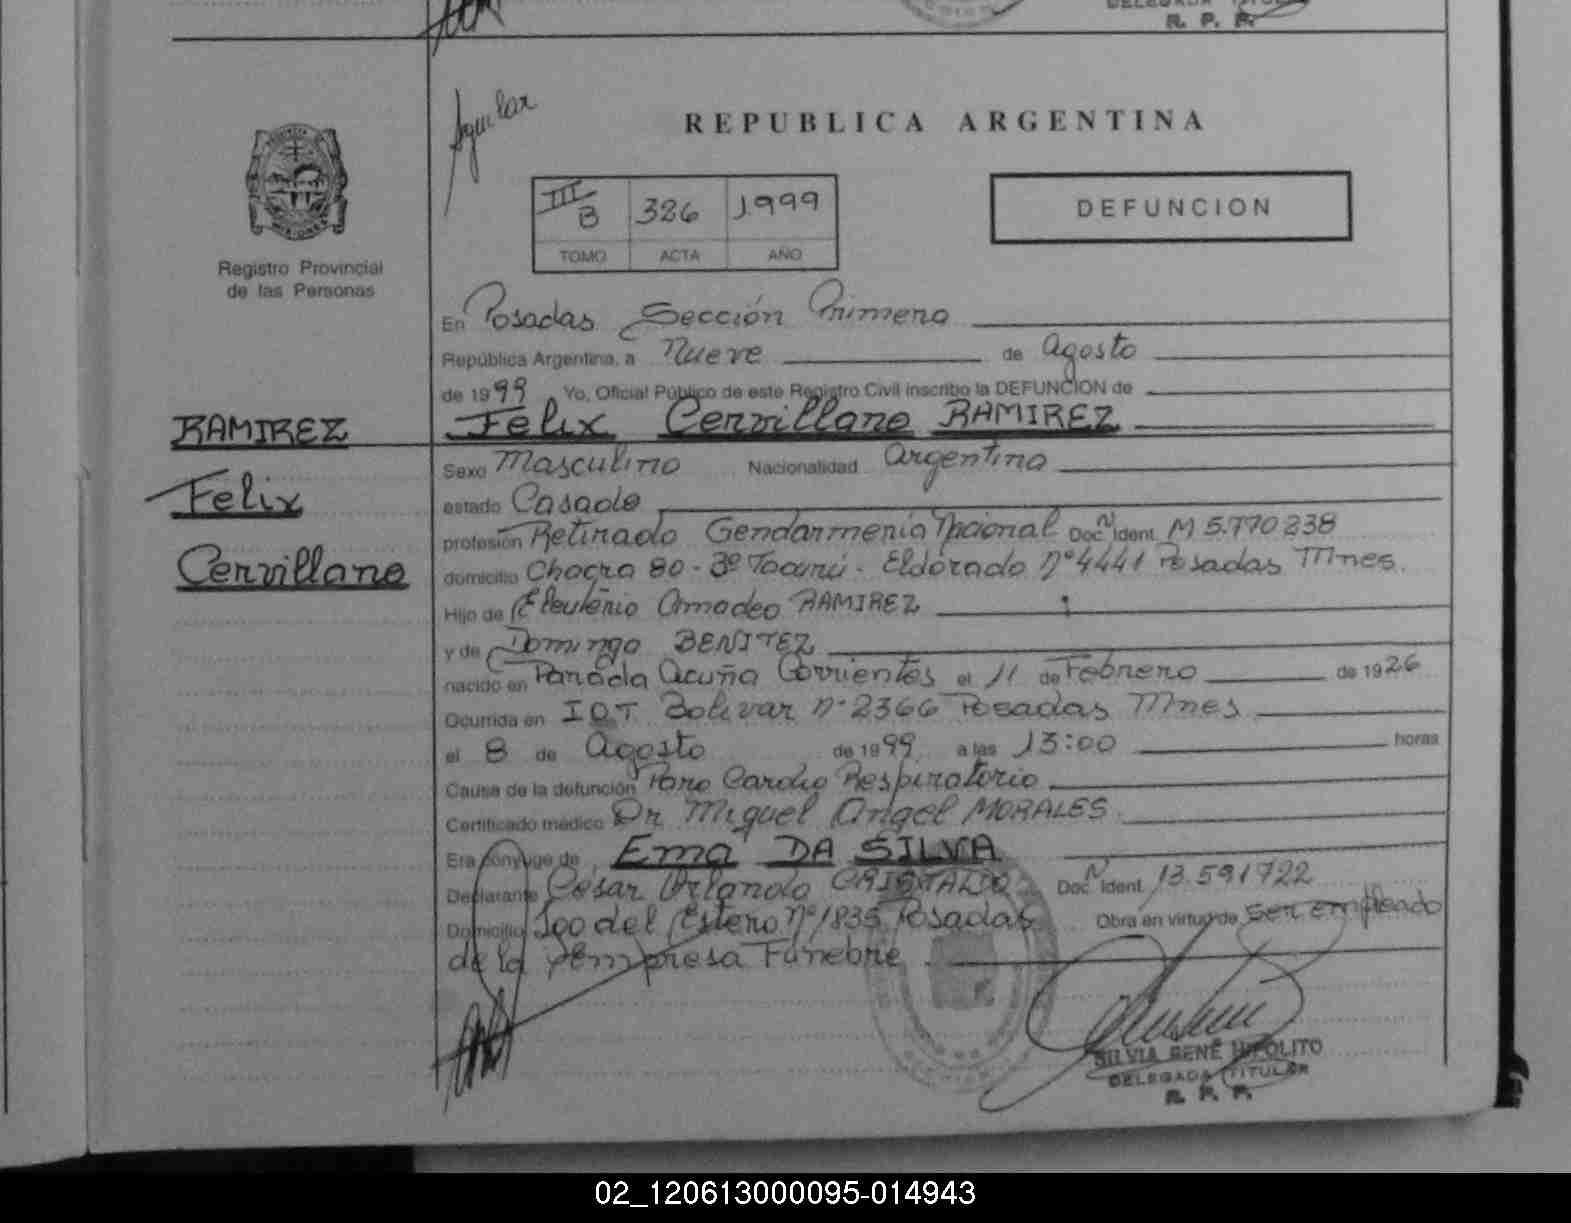 DELEGADA TITULAR
R. P. P.
Aguilar
REPUBLICA ARGENTINA
III B 326 1.999
TOMO ACTA AÑO
DEFUNCION
Registro Provincial
de las Personas
En Posadas Sección Primera
República Argentina, a Nueve de Agosto
de 1999 Yo, Oficial Público de este Registro Civil inscribo la DEFUNCION de
RAMIREZ
Felix
Cervillano
Felix Cervillano RAMIREZ
Sexo Masculino Nacionalidad Argentina
estado Casado
profesión Retirado Gendarmeria Nacional Doc. Ident. M 5.770238
domicilio Chacra 80 - Bº Tacurú - Eldorado Nº 4441 Posadas Mnes.
Hijo de Eleuterio Amadeo RAMIREZ
y de Dominga BENITEZ
nacido en Parada Acuña Corrientes el 11 de Febrero de 1926
Ocurrida en I.O.T. Bolivar nº 2366 Posadas Mnes
el 8 de Agosto de 1999 a las 13:00 horas
Causa de la defunción Paro Cardio Respiratorio
Certificado médico Dr. Miguel Angel MORALES
Era cónyuge de Ema DA SILVA
Declarante Cesar Orlando Doc. Ident. 13.591722
Domicilio Sgo del Estero Nº 1835 Posadas Obra en virtud de ser empleado
de la Empresa Fúnebre
SILVIA RENE HIPOLITO
DELEGADA TITULAR
R. P. P.
02_120613000095-014943